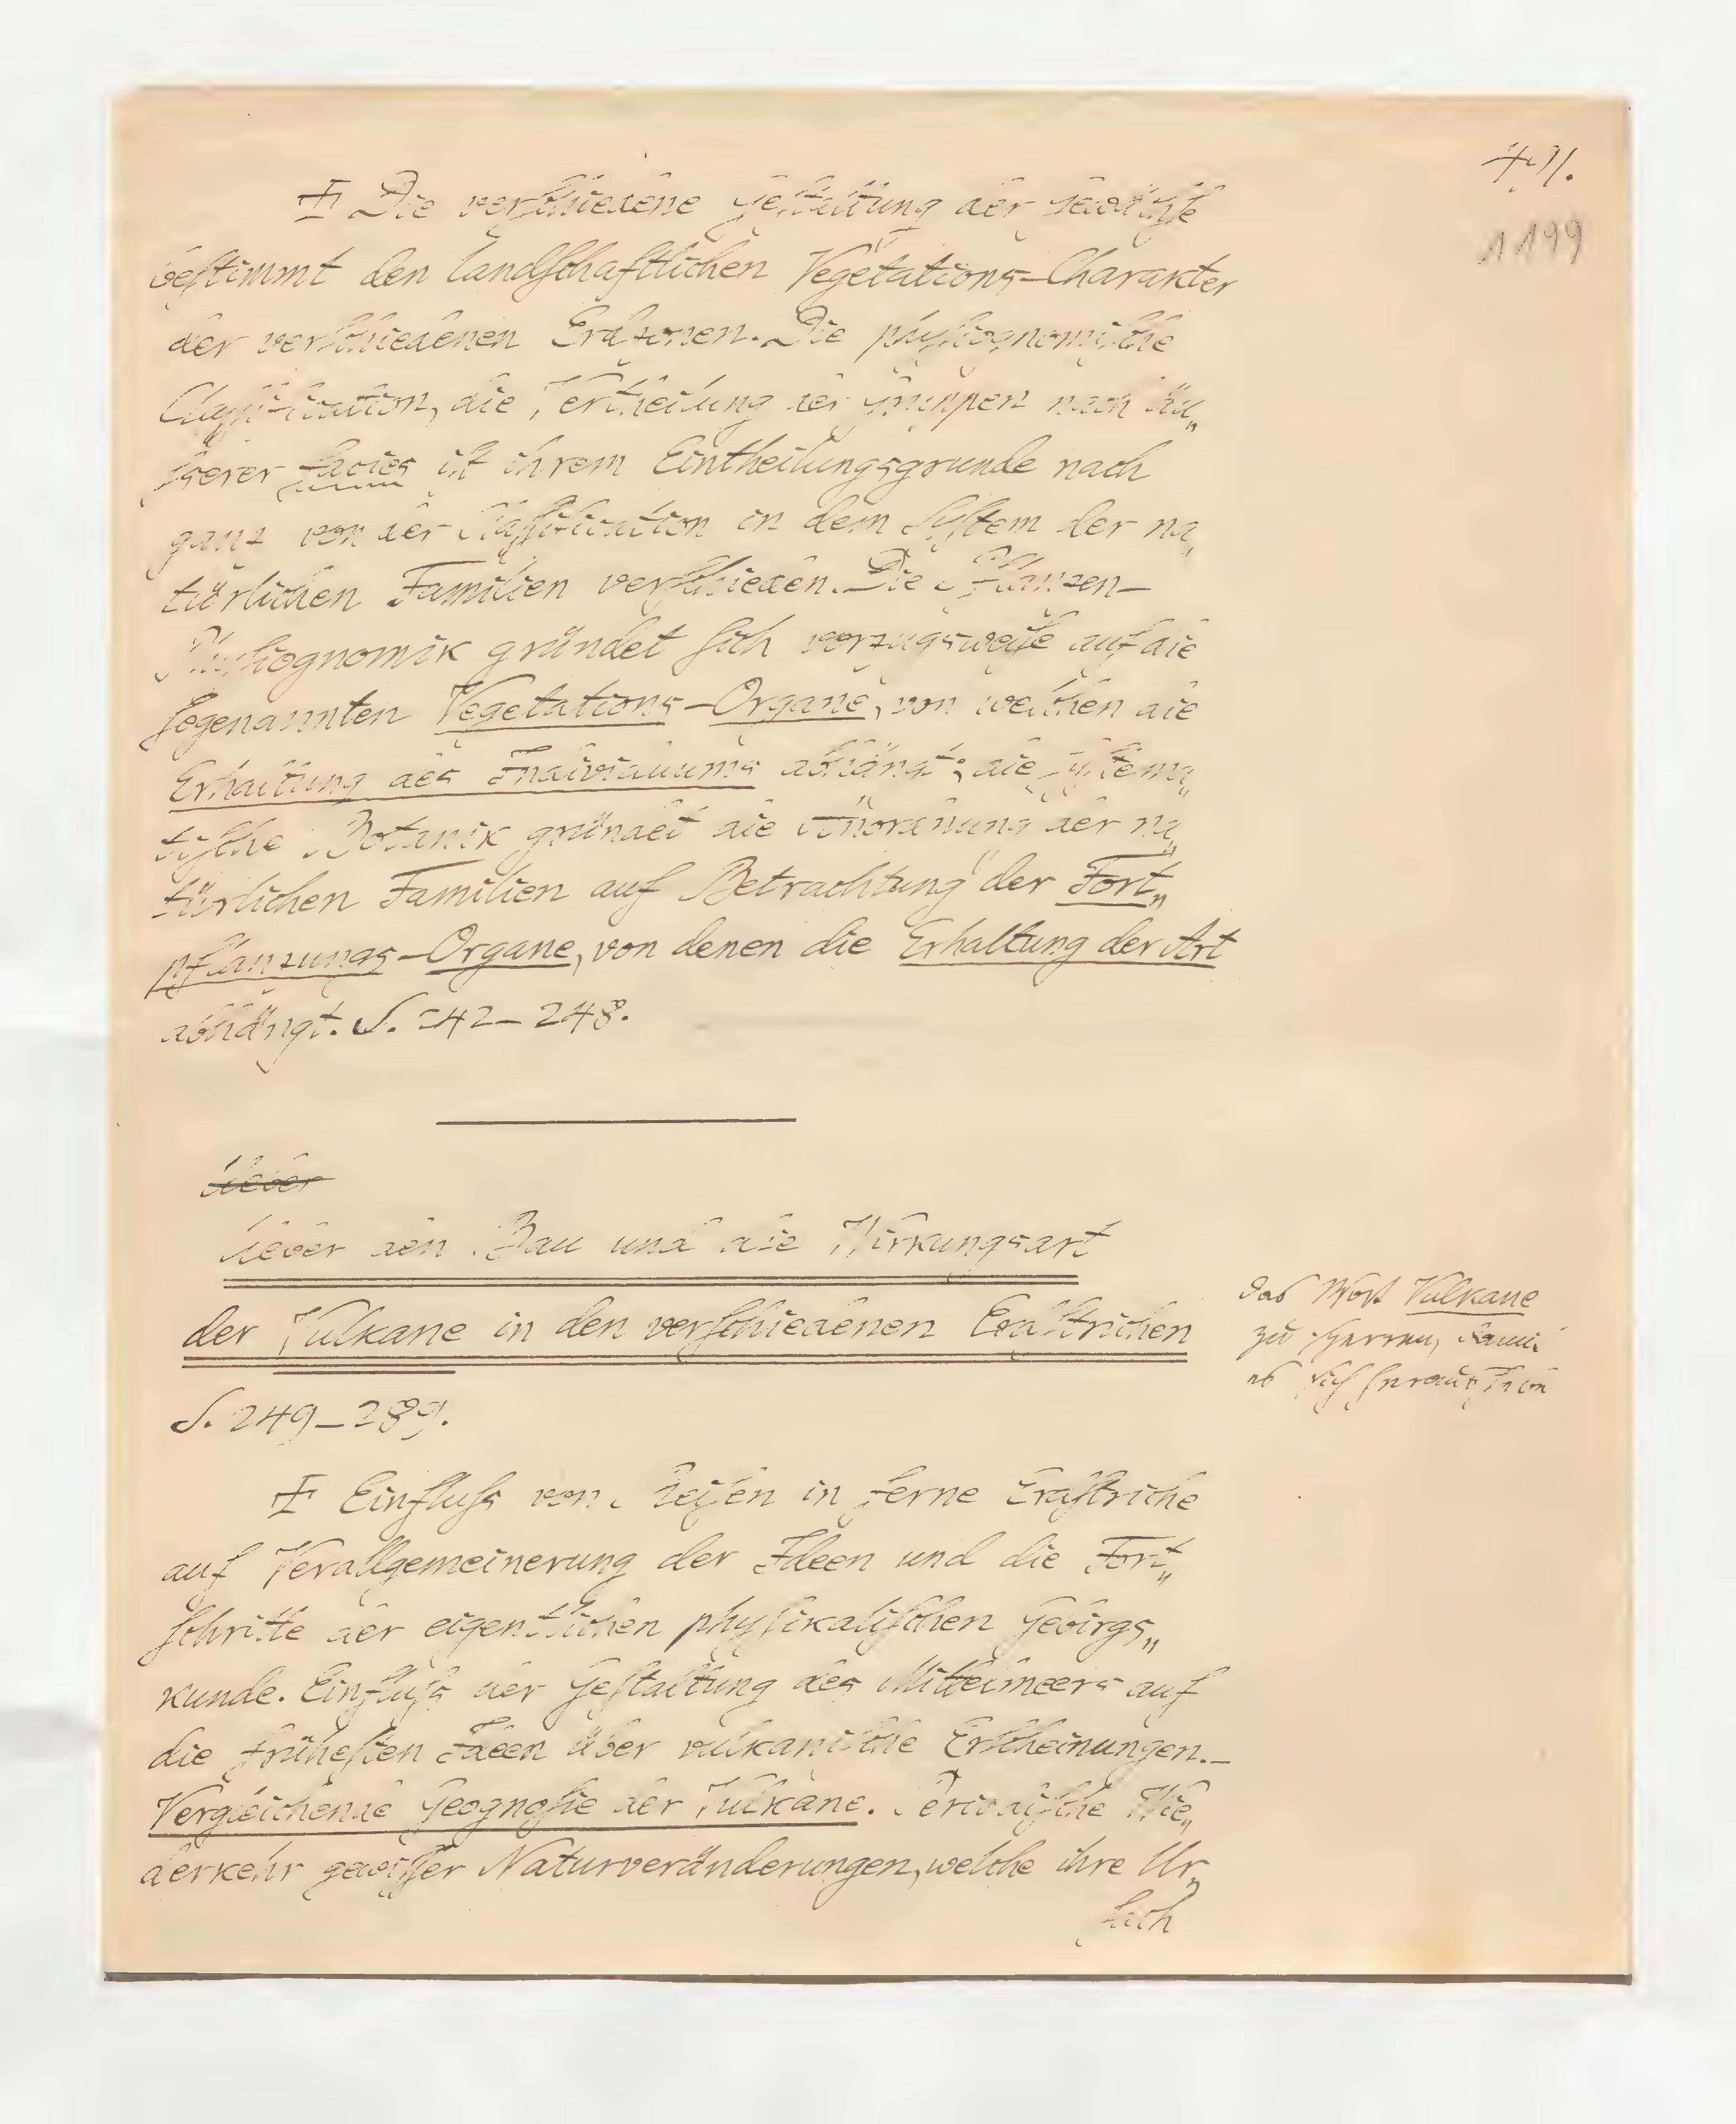 7.)).
1199
I Die verschiedene Gestaltung der Gewächse
bestimmt den landschaftlichen Vegetations-Charakter
der verschiedenen Erdzonen. Die physiognomische
Classification, die Vertheilung der Gruppen nach äu„
sserer facies ist ihrem Eintheilungsgrunde nach
ganz von der Classification in dem System der na„
türlichen Familien verschieden. Die Pflanzen-
Physiognomik gründet sich vorzugsweise auf die
sogenannten Vegetations-Organe, von welchen die
Erhaltung des Individuums abhängt; die systema„
tische Botanik gründet die Anordnung der na„
türlichen Familien auf Betrachtung der Fort„
pflanzungs-Organe, von denen die Erhaltung der Art
abhängt. S. 242–248.
Ueber
Ueber den Bau und die Wirkungsart
der Vulkane in den verschiedenen Erdstrichen
das Wort Vulkane
zu sperren, damit
es sich
S. 249–289.
I Einfluss von Reisen in ferne Erdstriche
auf Verallgemeinerung der Ideen und die Fort„
schritte der eigentlichen physikalischen Gebirgs„
kunde. Einfluss der Gestaltung des Mittelmeers auf
die frühesten Ideen über vulkanische Erscheinungen.–
Vergleichende Geognosie der Vulkane. Periodische Wie„
derkehr gewisser Naturveränderungen, welche ihre Ur„
sach